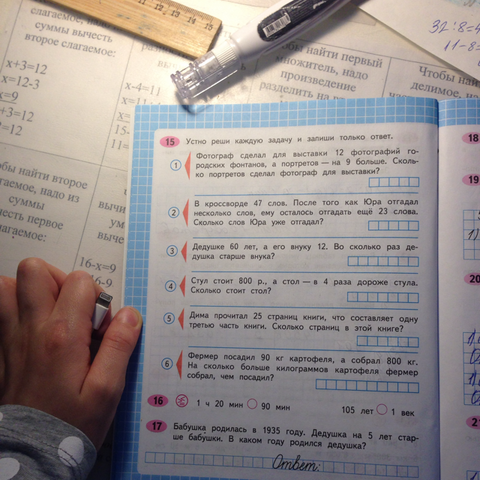 слагаемое,
суммы вычесть
второе слагаемое:
x+3=12
x=12-3
x=9
x-4=11
найти первый
множитель, надо
произведение
разделить на
Чтобы
делимое,
32:8=4
найти второе
слагаемое, надо из
суммы
вычесть первое
слагаемое:
16-x=9
15 Устно реши каждую задачу и запиши только ответ.
1 Фотограф сделал для выставки 12 фотографий го-
родских фонтанов, а портретов — на 9 больше. Сколь-
ко портретов сделал фотограф для выставки?
2 В кроссворде 47 слов. После того как Юра отгадал
несколько слов, ему осталось отгадать ещё 23 слова.
Сколько слов Юра уже отгадал?
3 Дедушке 60 лет, а его внуку 12. Во сколько раз де-
душка старше внука?
4 Стул стоит 800 р., а стол — в 4 раза дороже стула.
Сколько стоит стол?
5 Дима прочитал 25 страниц книги, что составляет одну
третью часть книги. Сколько страниц в этой книге?
6 Фермер посадил 90 кг картофеля, а собрал 800 кг.
На сколько больше килограммов картофеля фермер
собрал, чем посадил?
16 1 ч 20 мин 90 мин 105 лет 1 век
17 Бабушка родилась в 1935 году. Дедушка на 5 лет стар-
ше бабушки. В каком году родился дедушка?
Ответ:
18
19
20